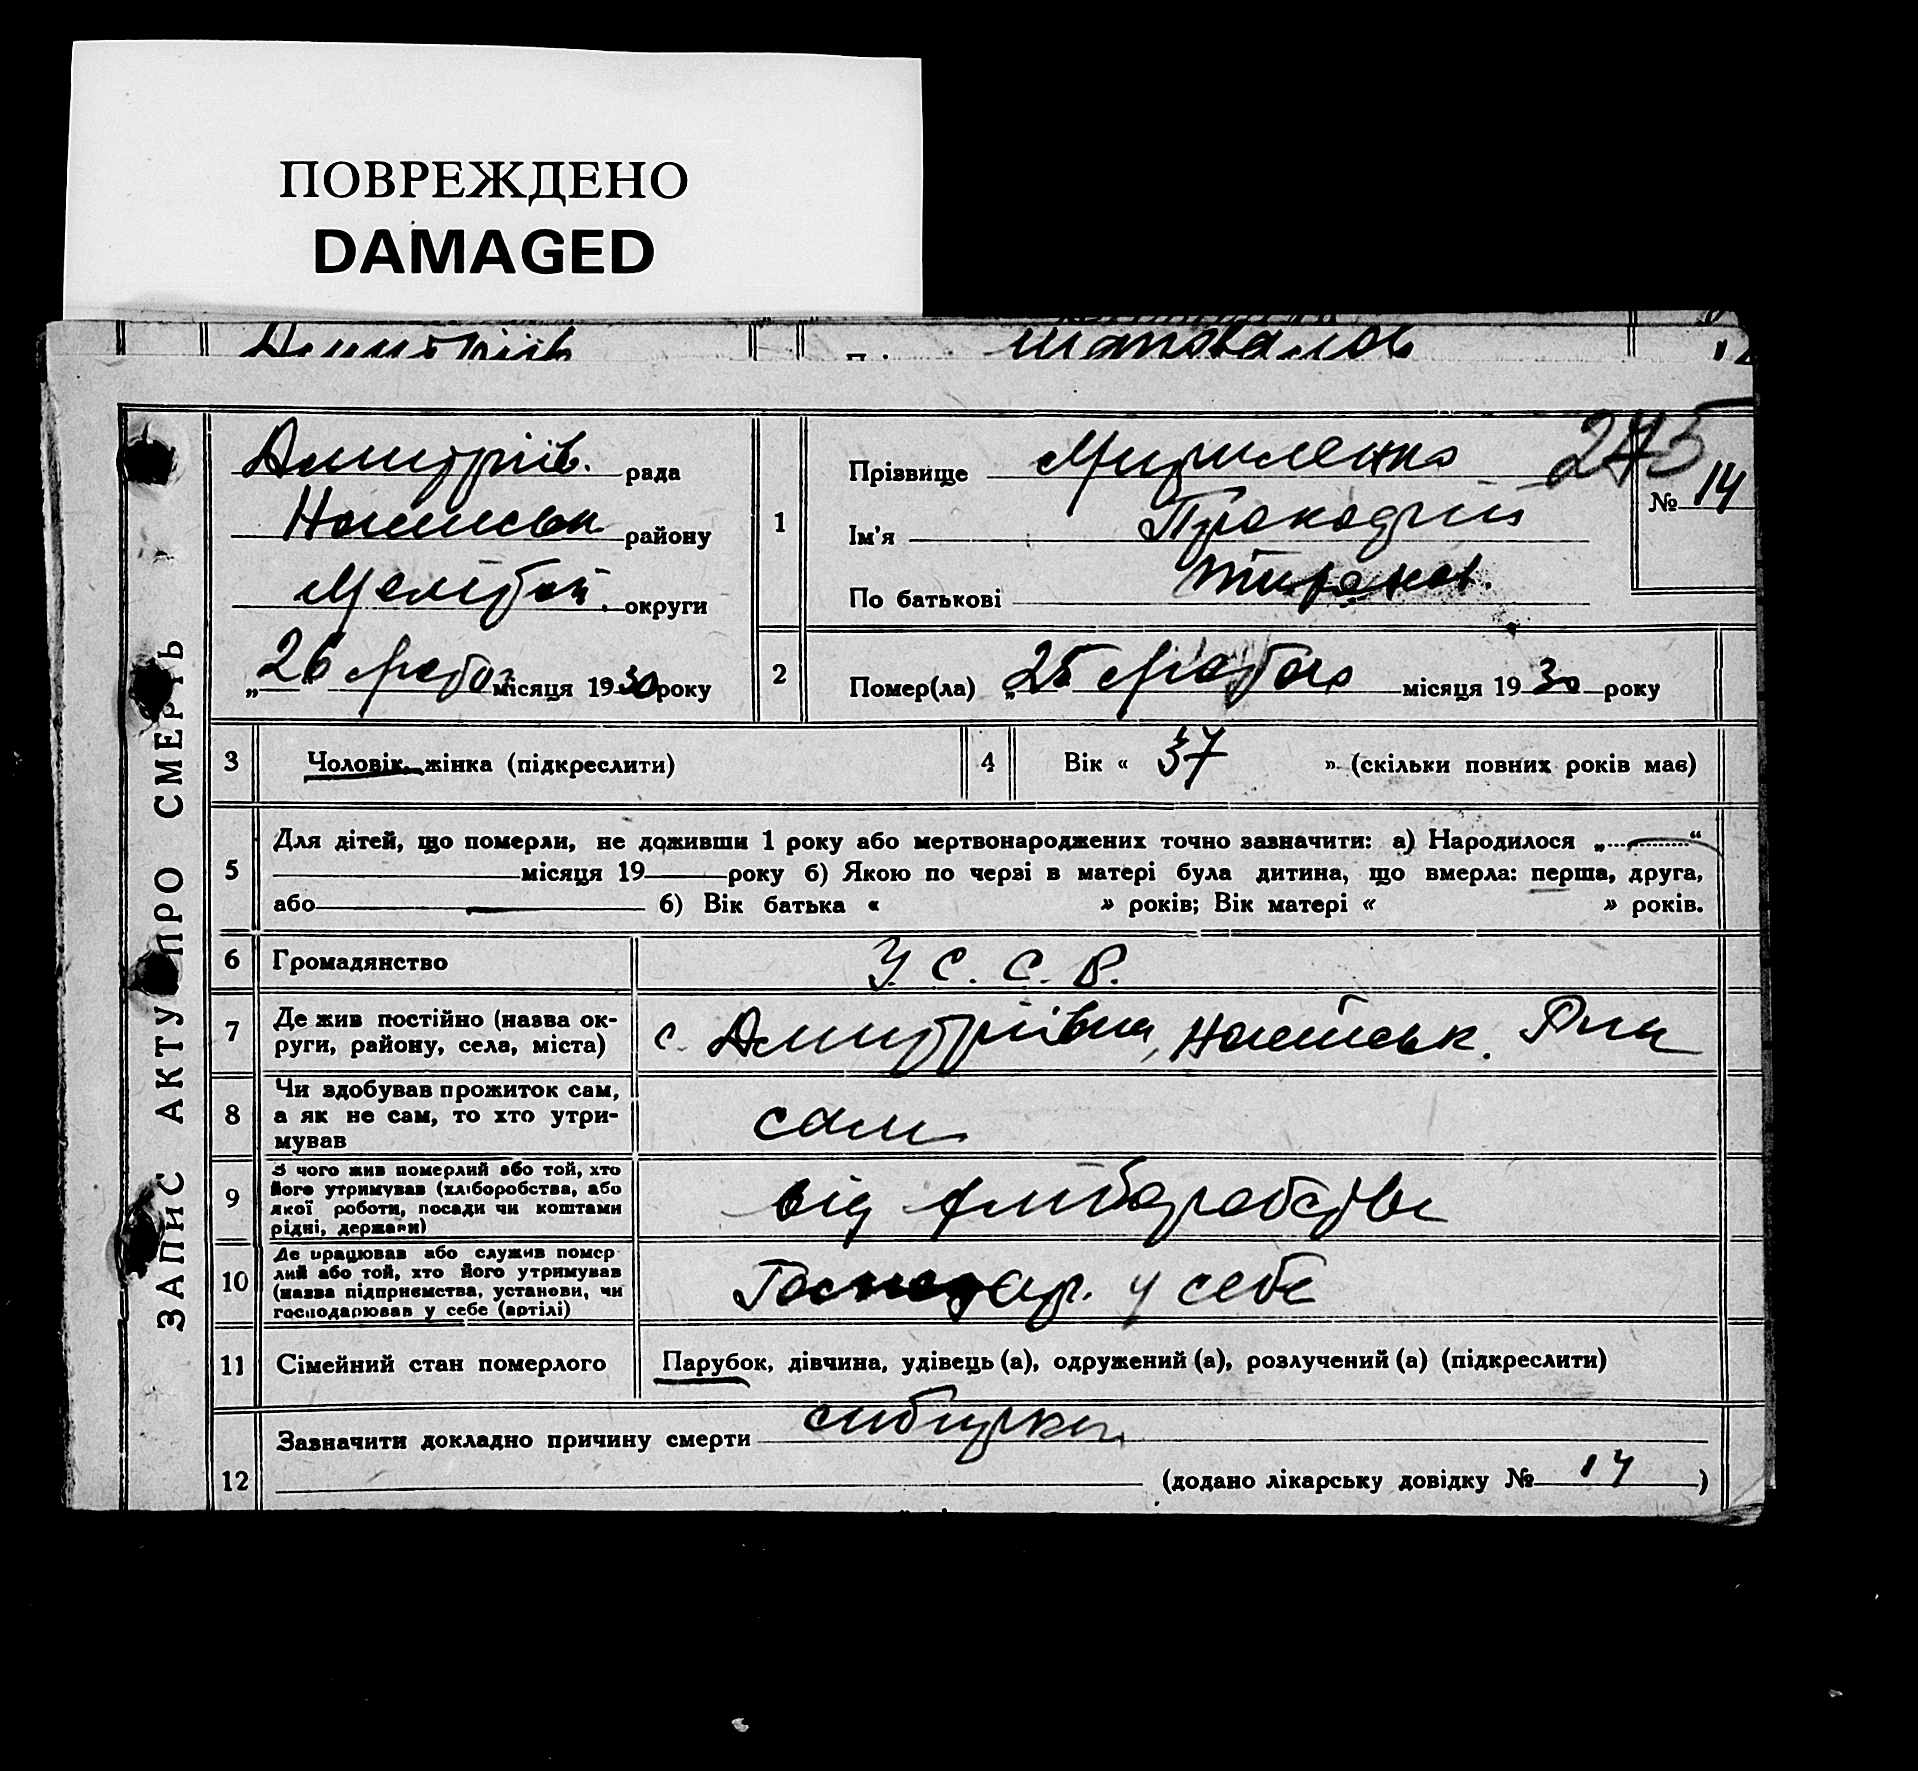 ПОВРЕЖДЕНО
DAMAGED
ЗАПИС АКТУ ПРО СМЕРТЬ
Дмитріїв. рада
району
Меліт округи
„26“ місяця 1930 року
1
Прізвище
Ім'я
По батькові
245
№ 14
2
Помер(ла) „25 місяця 1930 року
3 Чоловік, жінка (підкреслити)
4 Вік « 37 » (скільки повних років має)
5 Для дітей, що померли, не доживши 1 року або мертвонароджених точно зазначити: а) Народилося „ “
місяця 19 року б) Якою по черзі в матері була дитина, що вмерла: перша, друга,
або б) Вік батька « » років; Вік матері « » років.
6 Громадянство У. С. С. Р.
7 Де жив постійно (назва ок-
руги, району, села, міста)
с. Дмитрівка,
8 Чи здобував прожиток сам,
а як не сам, то хто утри-
мував
сам
9 З чого жив померлий або той, хто
його утримував (хліборобства, або
якої роботи, посади чи коштами
рідні, держави)
від хліборобства
10 Де працював або служив помер
лий або той, хто його утримував
(назва підприємства, установи, чи
господарював у себе (артілі)
Господар. у себе
11 Сімейний стан померлого Парубок, дівчина, удівець (а), одружений (а), розлучений (а) (підкреслити)
12 Зазначити докладно причину смерти сибирка
(додано лікарську довідку № 14 )